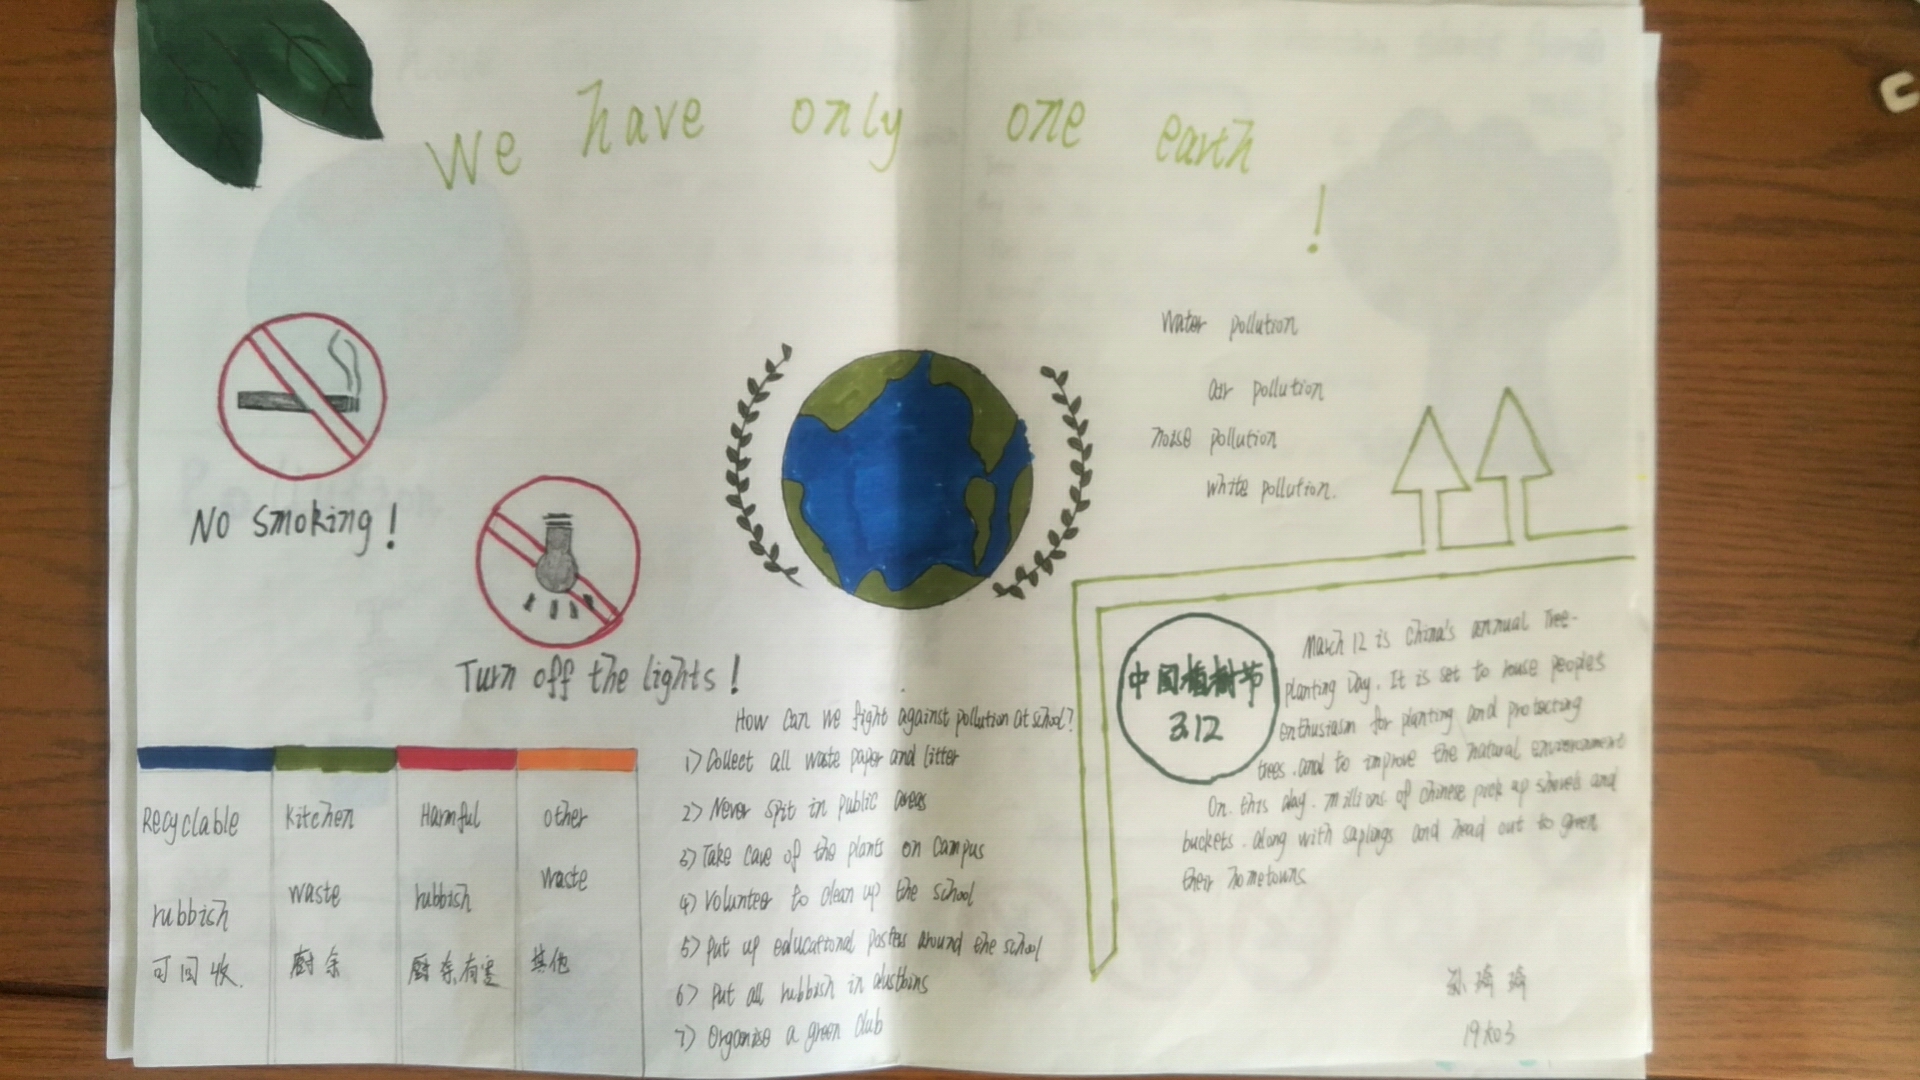 We have only one earth !
No smoking !
Turn off the lights !
Water pollution
air pollution
noise pollution
white pollution.
Recyclable
rubbish
可回收.
Kitchen
waste
厨余
Harmful
rubbish
厨余有害
other
waste
其他
How can we fight against pollution at school?
1) Collect all waste paper and litter
2) Never spit in public areas
3) Take care of the plants on campus
4) Volunteer to clean up the school
5) Put up educational posters around the school
6) Put all rubbish in dustbins
7) Organise a green club
中国植树节
3.12
March 12 is China's annual Tree-
planting Day. It is set to rouse people's
enthusiasm for planting and protecting
trees. and to improve the natural environment
On. this day. millions of chinese pick up shovels and
buckets. along with saplings and head out to green
their hometowns
孙琦琦